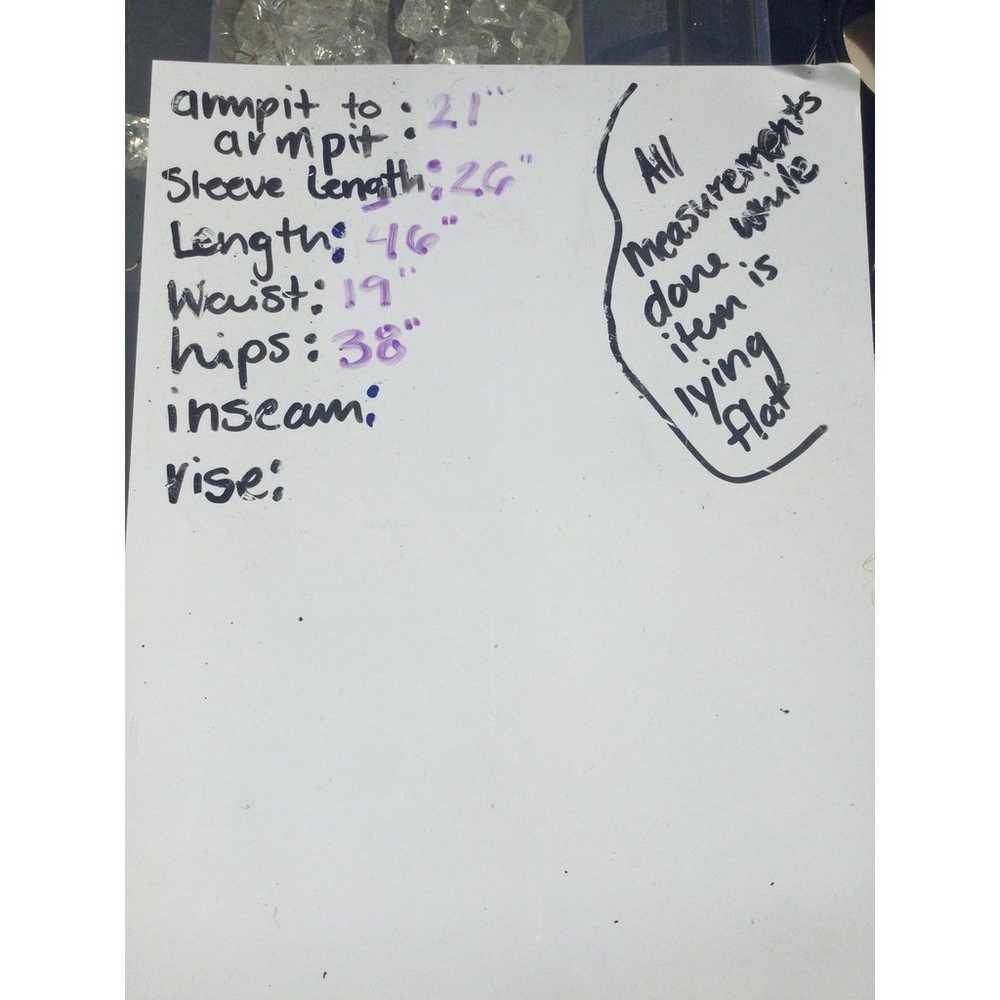 armpit to : 21"
armpit
Sleeve Length: 26"
Length: 46"
Waist: 19"
hips: 38"
inseam:
rise:
All
measurements
done while
item is
lying
flat